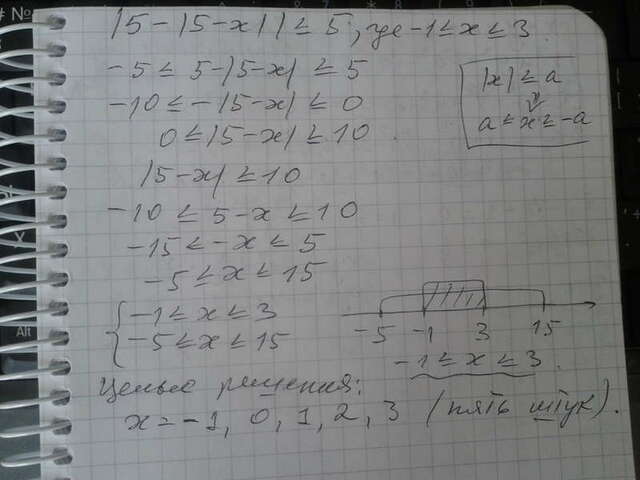 |5-|5-x|| ≤ 5, где -1 ≤ x ≤ 3.
-5 ≤ 5-|5-x| ≤ 5
-10 ≤ -|5-x| ≤ 0
0 ≤ |5-x| ≤ 10.
|5-x| ≤ 10
-10 ≤ 5-x ≤ 10
-15 ≤ -x ≤ 5
-5 ≤ x ≤ 15
{ -1 ≤ x ≤ 3
-5 ≤ x ≤ 15
|x| ≤ a
⇓
a ≤ x ≤ -a
-5 -1 3 15
-1 ≤ x ≤ 3.
Целые решения:
x = -1, 0, 1, 2, 3 (пять штук).
Alt
# №